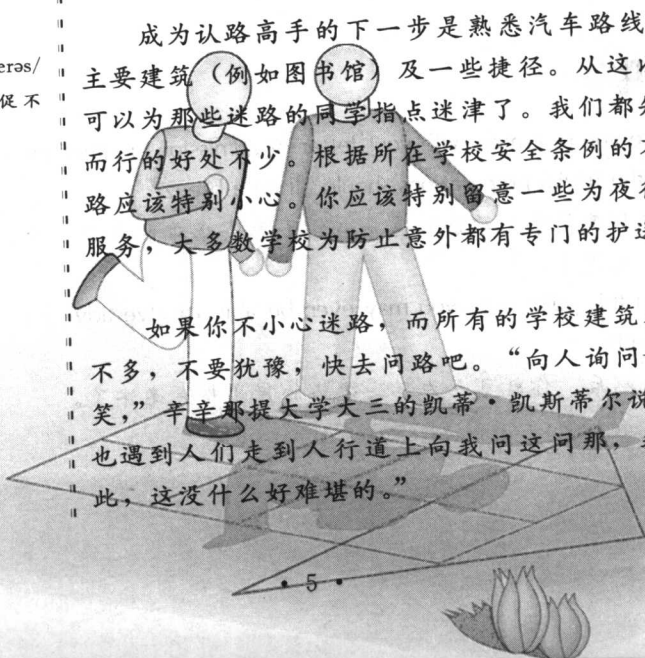 erəs/
促 不
成为认路高手的下一步是熟悉汽车路线
主要建筑（例如图书馆）及一些捷径。从这
可以为那些迷路的同学指点迷津了。我们都
而行的好处不少。根据所在学校安全条例的
路应该特别小心。你应该特别留意一些为夜
服务，大多数学校为防止意外都有专门的护
如果你不小心迷路，而所有的学校建筑
不多，不要犹豫，快去问路吧。“向人询问
笑，”辛辛那提大学大三的凯蒂·凯斯蒂尔说
也遇到人们走到人行道上向我问这问那，
此，这没什么好难堪的。”
• 5 •